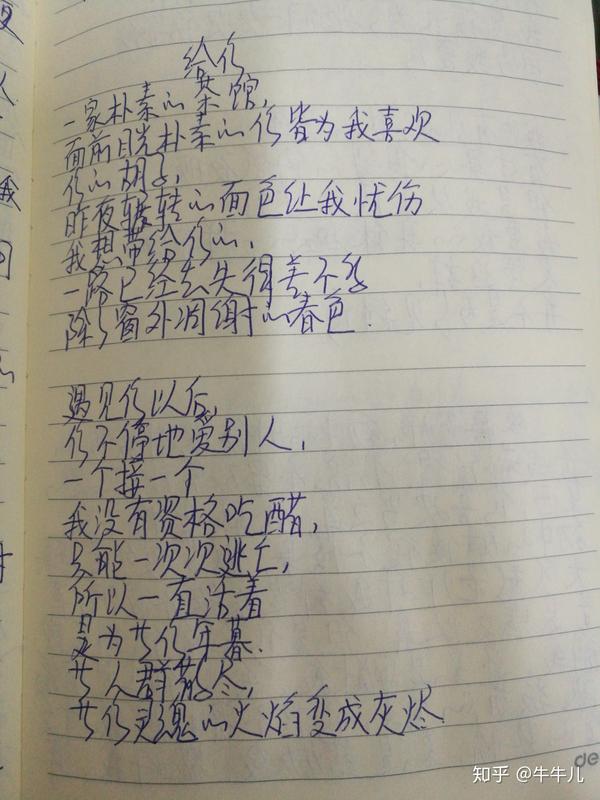 给你
一家朴素的茶馆,
面前目光朴素的你皆为我喜欢
你的胡子,
昨夜辗转的面色让我忧伤
我想带给你的,
一路已经丢失得差不多
除了窗外凋谢的春色.
遇见你以后,
你不停地爱别人,
一个接一个
我没有资格吃醋,
只能一次次逃亡,
所以一直活着
是为等你年暮.
等人群散尽,
等你灵魂的火焰变成灰烬
我
de
知乎 @牛牛儿